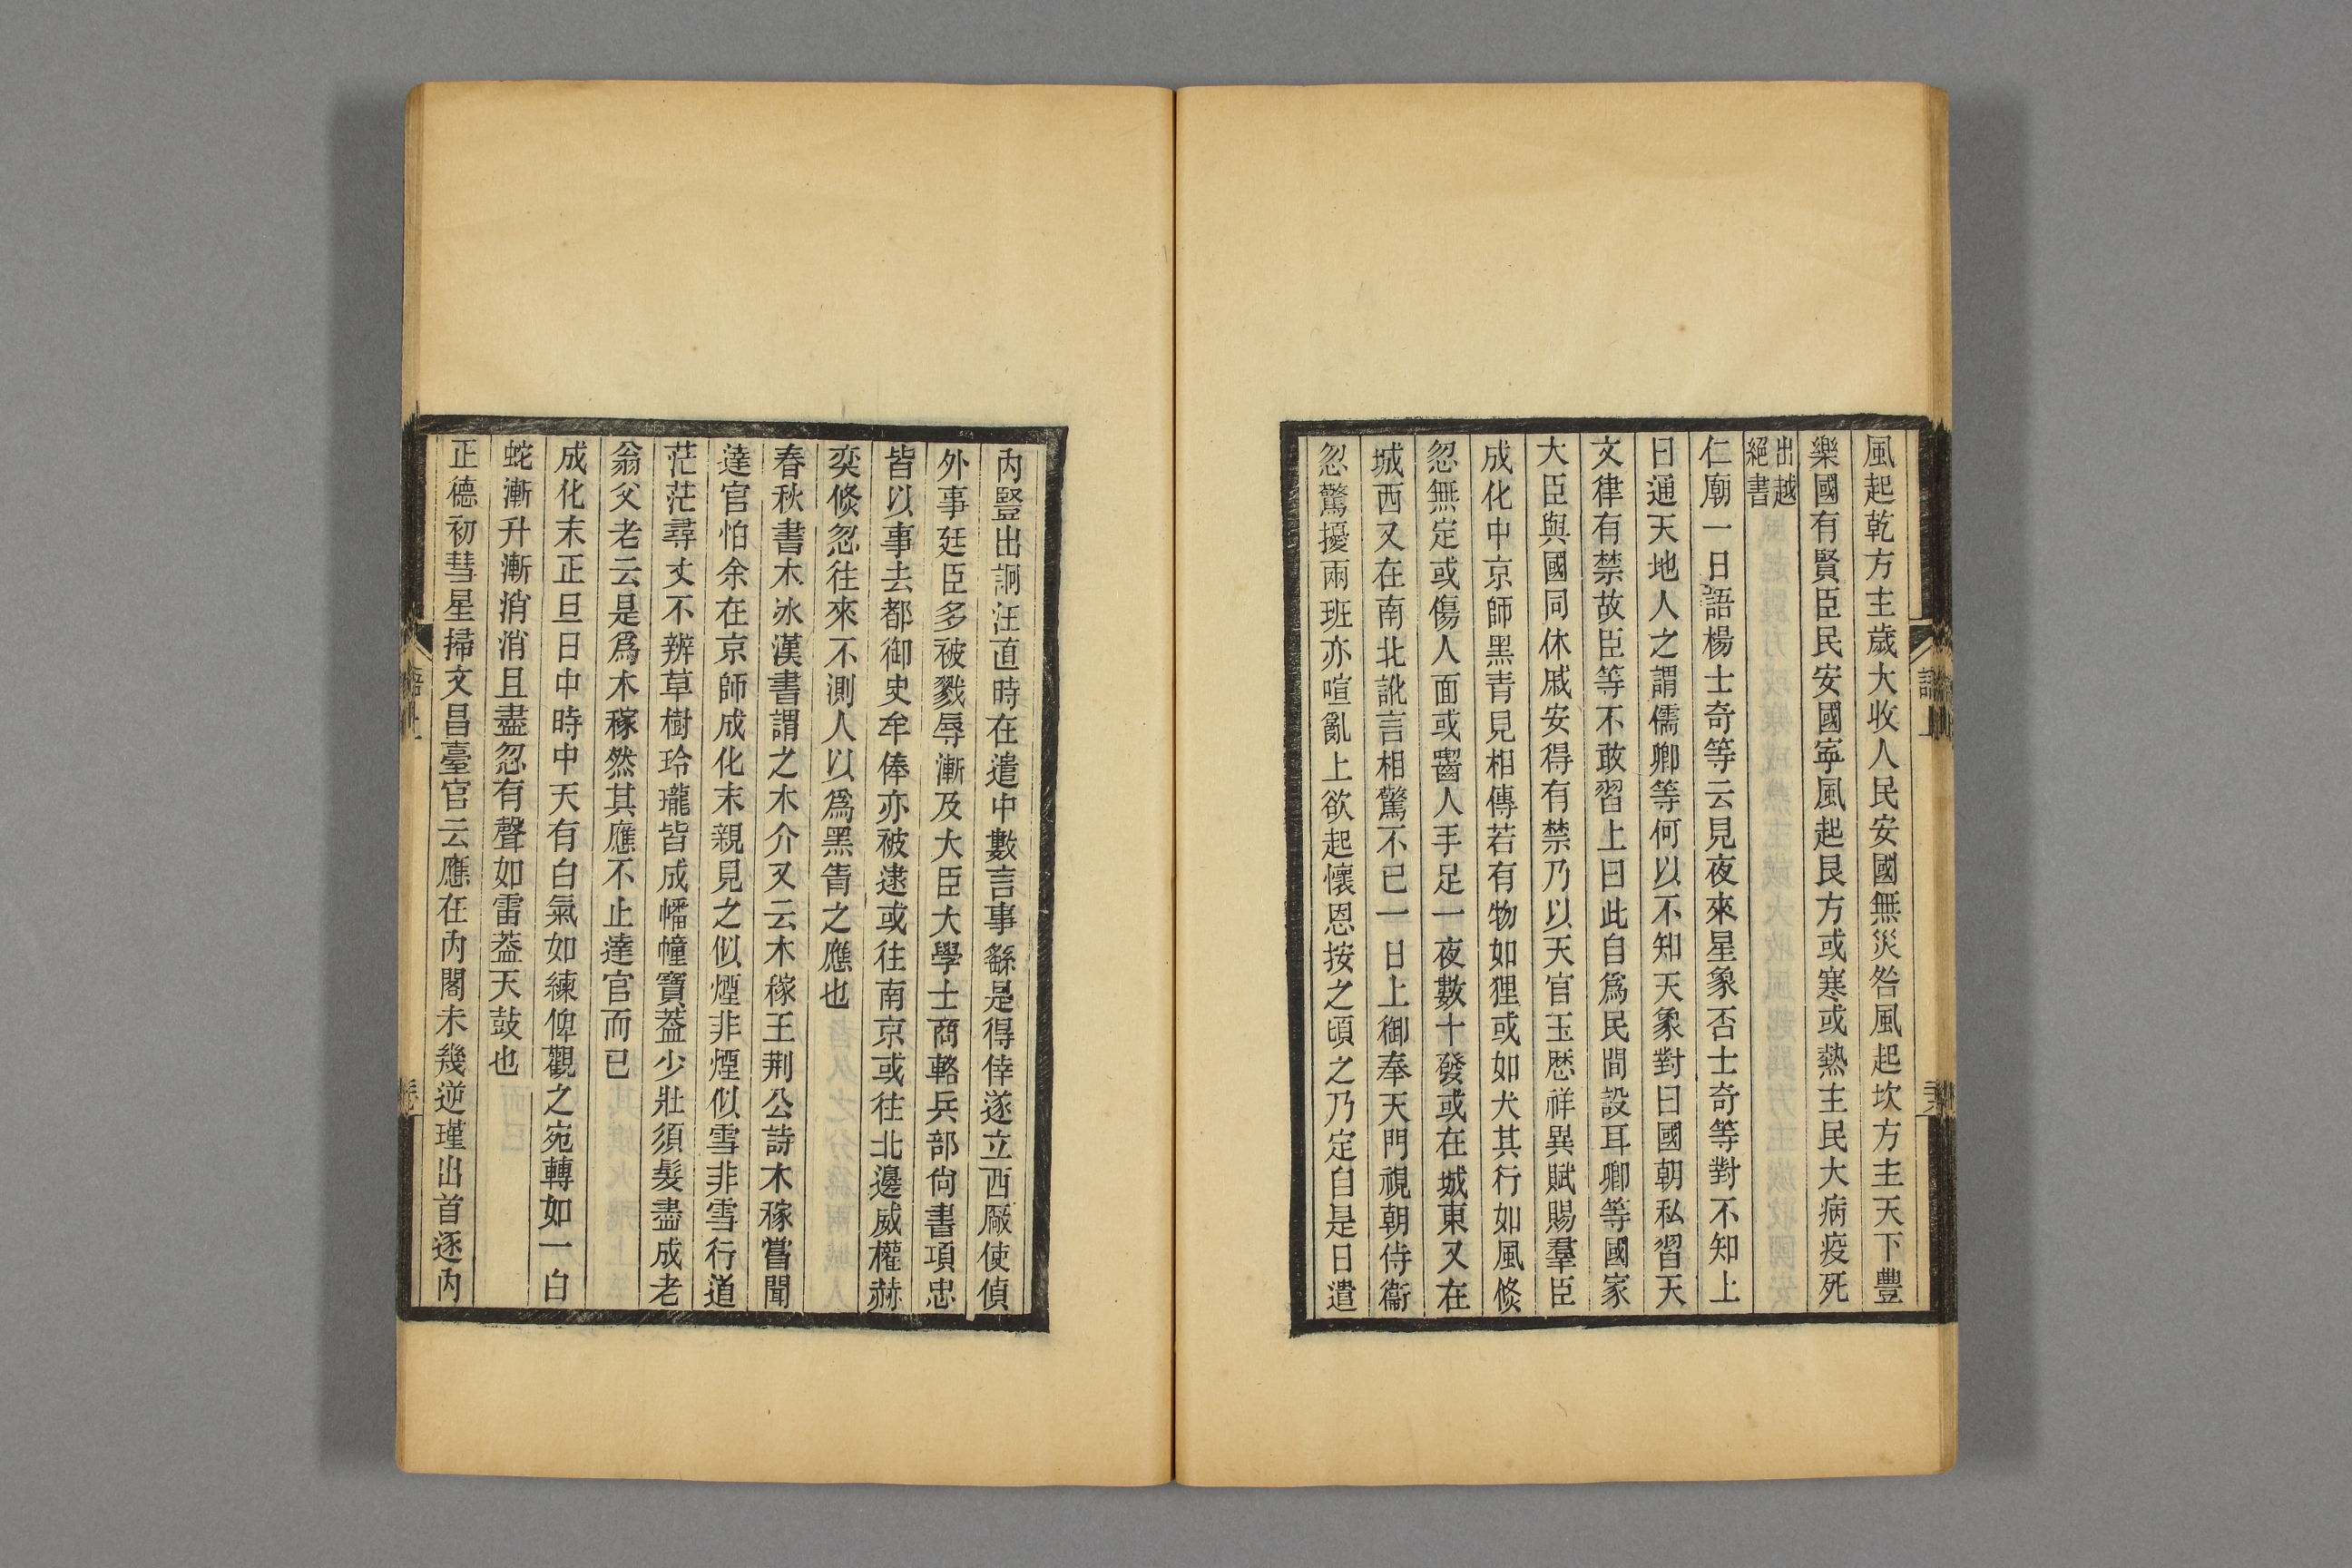 風起乾方主歲大收人民安國無災咎風起坎方主天下豐
樂國有賢臣民安國寧風起艮方或寒或熱主民大病疫死
出越
絕書
仁廟一日語楊士奇等云見夜來星象否士奇等對不知上
曰通天地人之謂儒卿等何以不知天象對曰國朝私習天
文律有禁故臣等不敢習上曰此自爲民間設耳卿等國家
大臣與國同休戚安得有禁乃以天官玉曆祥異賦賜羣臣
成化中京師黑眚見相傳若有物如狸或如犬其行如風倏
忽無定或傷人面或齧人手足一夜數十發或在城東又在
城西又在南北訛言相驚不已一日上御奉天門視朝侍衞
忽驚擾兩班亦喧亂上欲起懷恩按之頃之乃定自是日遣
內豎出詗汪直時在遣中數言事繇是得倖遂立西厰使偵
外事廷臣多被戮辱漸及大臣大學士商輅兵部尙書項忠
皆以事去都御史牟俸亦被逮或往南京或往北邊威權赫
奕倏忽往來不測人以爲黑眚之應也
春秋書木冰漢書謂之木介又云木稼王荆公詩木稼嘗聞
達官怕余在京師成化末親見之似煙非煙似雪非雪行道
茫茫尋丈不辨草樹玲瓏皆成幡幢寶葢少壯須髮盡成老
翁父老云是爲木稼然其應不止達官而已
成化末正旦日中時中天有白氣如練俾觀之宛轉如一白
蛇漸升漸消消且盡忽有聲如雷葢天鼓也
正德初彗星掃文昌臺官云應在內閣未幾逆瑾出首逐內
語上